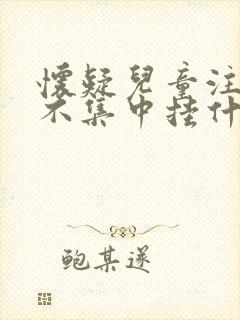 懷疑兒童注
不集中挂什
鲍某遂